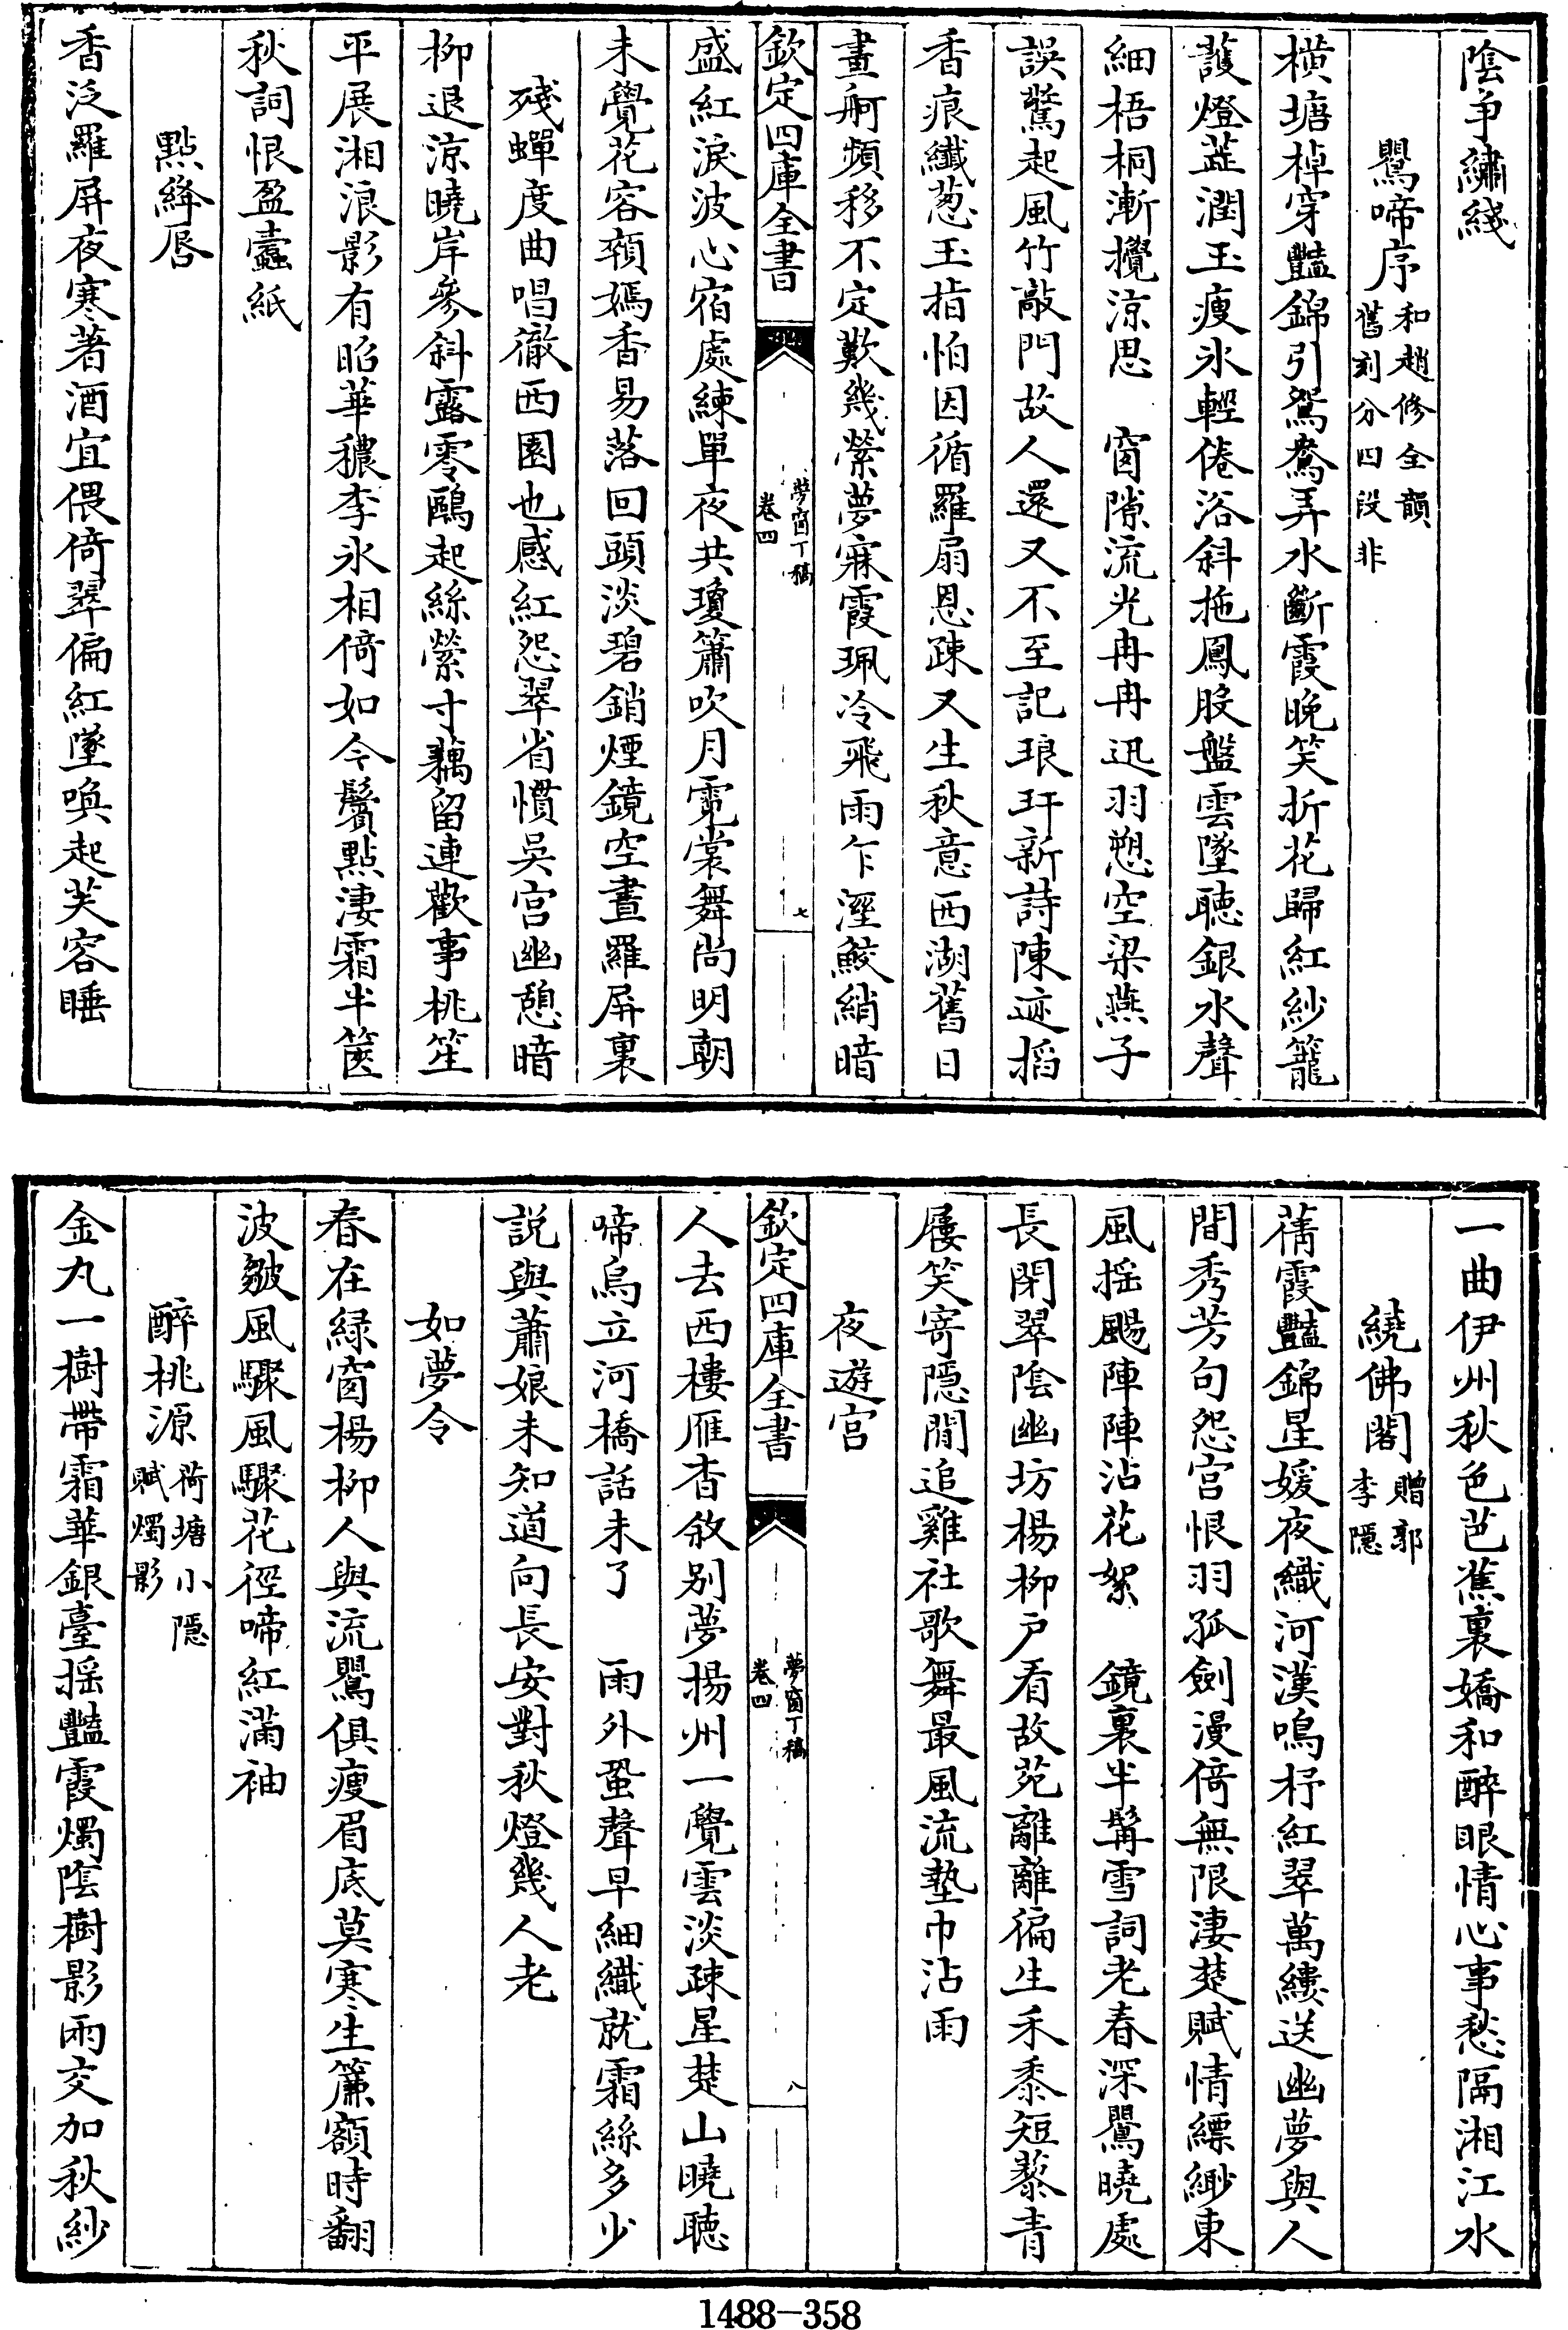 陰爭繡綫
鶯啼序 和趙修全韻 舊刻分四段非
橫塘棹穿豔錦引鴛鴦弄水斷霞晚笑折花歸紺紗籠
護燈蕋潤玉瘦氷輕倦浴斜拖鳳股盤雲墜聽銀氷聲
細梧桐漸攪涼思　窗隙流光冉冉迅羽愬空梁燕子
誤驚起風竹敲門故人還又不至記琅玕新詩陳迹搯
香痕纖葱玉指怕因循羅扇恩疎又生秋意西湖舊日
畫舸頻移不定歎幾縈夢寐霞珮冷飛雨乍溼鮫綃暗
欽定四庫全書 夢窗丁稿 卷四 七
盛紅淚波心宿處練單夜共瓊簫吹月霓裳舞尚明朝
未覺花容顇嫣香易落回頭淡碧銷煙鏡空畫羅屏裏
殘蟬度曲唱徹西園也感紅怨翠省慣吳宮幽憩暗
柳退涼曉岸參斜露零鷗起絲縈寸藕留連歡事桃笙
平展湘浪影有昭華穠李氷相倚如今鬢點淒霜半篋
秋詞恨盈蠹紙
點絳唇
香泛羅屏夜寒著酒宜偎倚翠偏紅墜喚起芙容睡
一曲伊州秋色芭蕉裏嬌和醉眼情心事愁隔湘江水
繞佛閣 贈郭 李隱
蒨霞豔錦星媛夜織河漢鳴杼紅翠萬縷送幽夢與人
間秀芳句怨宮恨羽孤劍漫倚無限淒楚賦情縹緲東
風揺颺陣陣沾花絮　鏡裏半髯雪詞老春深鶯曉處
長閉翠陰幽坊楊柳戸看故苑離離徧生禾黍短藜青
屨笑寄隱閒追雞社歌舞最風流墊巾沾雨
夜遊宮
欽定四庫全書 夢窗丁稿 卷四 八
人去西樓雁杳敘別夢揚州一覺雲淡疎星楚山曉聽
啼烏立河橋話未了　雨外蛩聲早細織就霜絲多少
說與蕭娘未知道向長安對秋燈幾人老
如夢令
春在緑窗楊柳人與流鶯俱瘦眉底莫寒生簾額時翻
波皺風驟風驟花徑啼紅滿袖
醉桃源 荷塘小隱 賦燭影
金丸一樹帶霜華銀臺揺豔霞燭陰樹影兩交加秋紗
1488-358